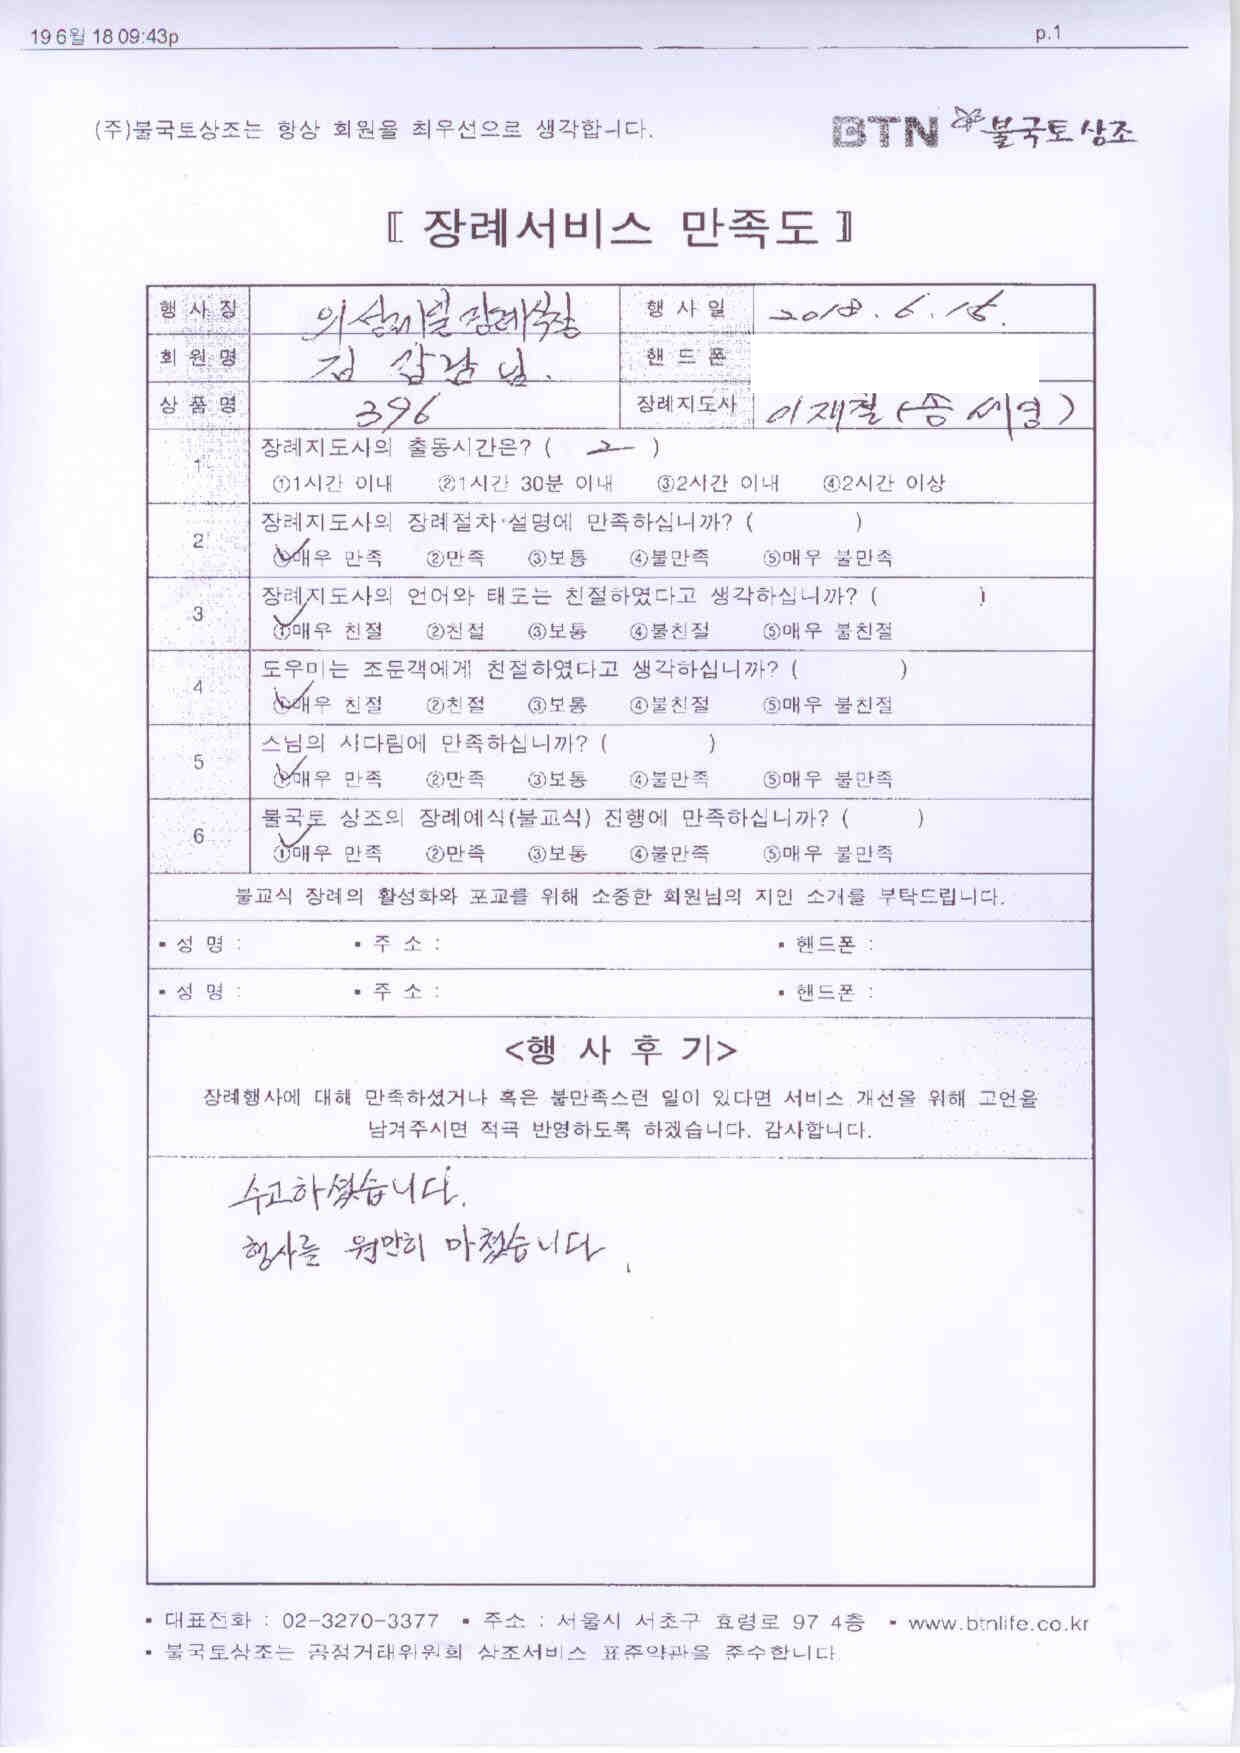 19 6월 18 09:43p p.1
(주)불국토상조는 항상 회원을 최우선으로 생각합니다.
BTN 불국토상조
〖 장례서비스 만족도 〗
행 사 장 의성제일장례식장 행 사 일 2018. 6. 15.
회 원 명 김 갑남 님. 핸 드 폰
상 품 명 396 장례지도사 이재철 (송세열)
1 장례지도사의 출동시간은? ( 2 )
①1시간 이내 ②1시간 30분 이내 ③2시간 이내 ④2시간 이상
2 장례지도사의 장례절차·설명에 만족하십니까? ( )
①매우 만족 ②만족 ③보통 ④불만족 ⑤매우 불만족
3 장례지도사의 언어와 태도는 친절하였다고 생각하십니까? ( )
①매우 친절 ②친절 ③보통 ④불친절 ⑤매우 불친절
4 도우미는 조문객에게 친절하였다고 생각하십니까? ( )
①매우 친절 ②친절 ③보통 ④불친절 ⑤매우 불친절
5 스님의 시다림에 만족하십니까? ( )
①매우 만족 ②만족 ③보통 ④불만족 ⑤매우 불만족
6 불국토 상조의 장례예식(불교식) 진행에 만족하십니까? ( )
①매우 만족 ②만족 ③보통 ④불만족 ⑤매우 불만족
불교식 장례의 활성화와 포교를 위해 소중한 회원님의 지인 소개를 부탁드립니다.
▪ 성 명 : ▪ 주 소 : ▪ 핸드폰 :
▪ 성 명 : ▪ 주 소 : ▪ 핸드폰 :
<행 사 후 기>
장례행사에 대해 만족하셨거나 혹은 불만족스런 일이 있다면 서비스 개선을 위해 고언을
남겨주시면 적극 반영하도록 하겠습니다. 감사합니다.
수고하셨습니다.
행사를 원만히 마쳤습니다.
▪ 대표전화 : 02-3270-3377 ▪ 주소 : 서울시 서초구 효령로 97 4층 ▪ www.btnlife.co.kr
▪ 불국토상조는 공정거래위원회 상조서비스 표준약관을 준수합니다